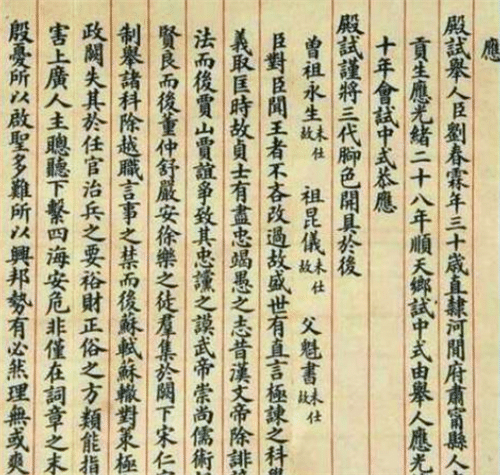 應
殿試舉人臣劉春霖年三十歲直隸河間府肅甯縣人
貢生應光緒二十八年順天鄉試中式由舉人應光
十年會試中式恭應
殿試謹將三代脚色開具於後
曾祖永生未仕故 祖昆儀未仕故 父魁書未仕故
臣對臣聞王者不吝改過故盛世有直言極諫之科
義取匡時故貞士有盡忠竭愚之志昔漢文帝除誹
法而後賈山賈誼爭致其忠讜之謨武帝崇尚儒術
賢良而後董仲舒嚴安徐樂之徒羣集於闕下宋仁
制舉諸科除越職言事之禁而後蘇軾蘇轍對策極
政闕失其於任官治兵之要裕財正俗之方類能指
害上廣人主聰聽下繫四海安危非僅在詞章之末
殷憂所以啟聖多難所以興邦勢有必然理無或爽